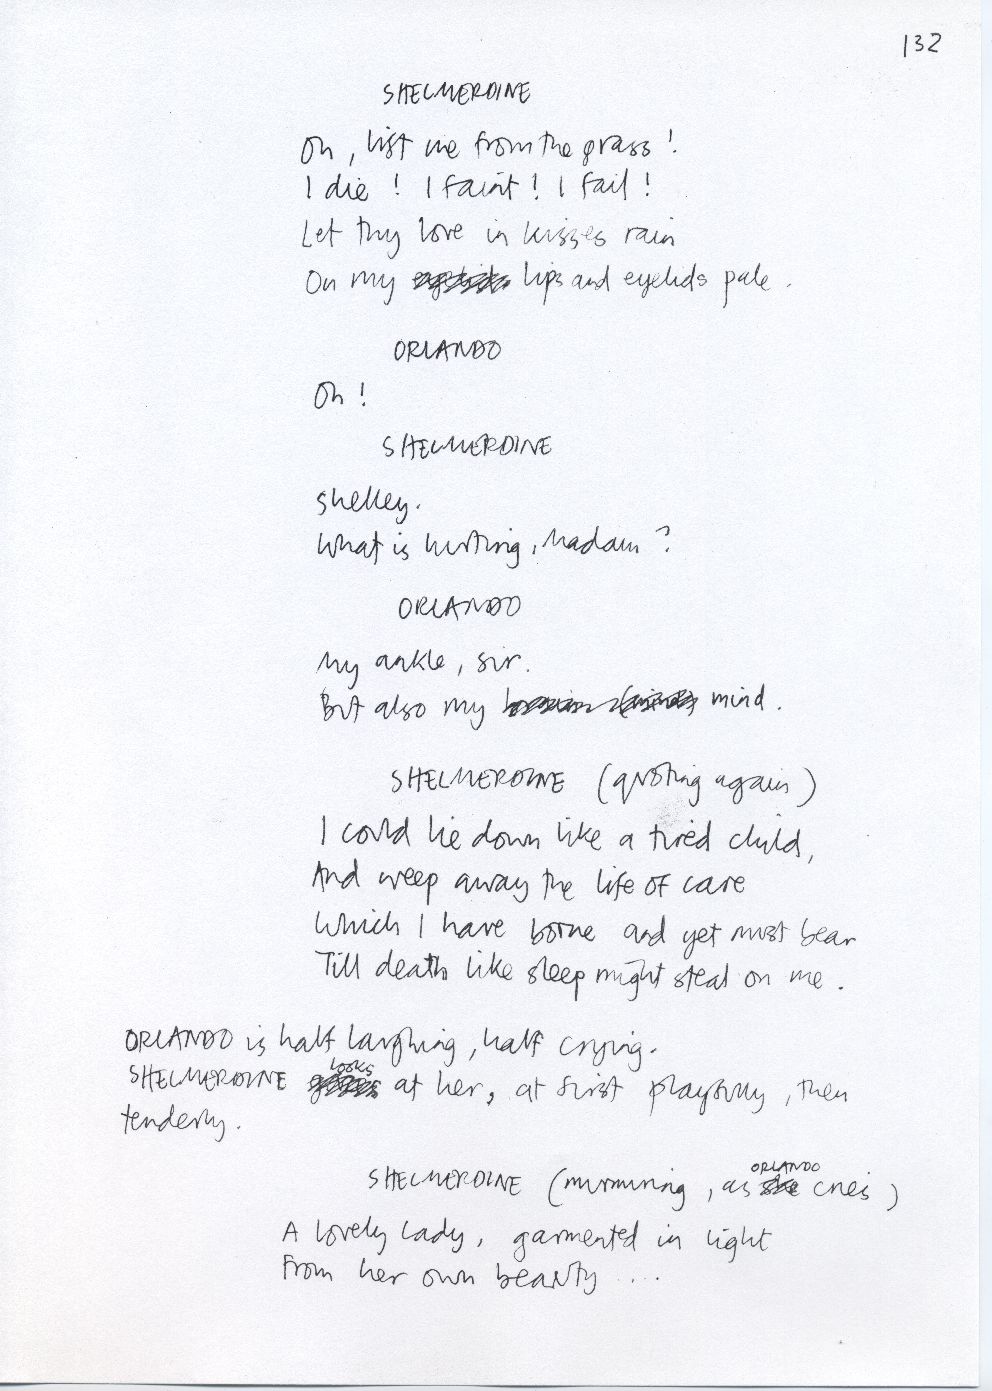 132
SHELMERDINE
Oh, lift me from the grass!
I die! I faint! I fail!
Let thy love in kisses rain
On my lips and eyelids pale.
ORLANDO
Oh!
SHELMERDINE
Shelley.
What is hurting, Madam?
ORLANDO
My ankle, sir.
But also my mind.
SHELMERDINE (quoting again)
I could lie down like a tired child,
And weep away the life of care
Which I have borne and yet must bear
Till death like sleep might steal on me.
ORLANDO is half laughing, half crying.
SHELMERDINE looks at her, at first playfully, then
tenderly.
SHELMERDINE (murmuring, as ORLANDO cries)
A lovely lady, garmented in light
From her own beauty ....